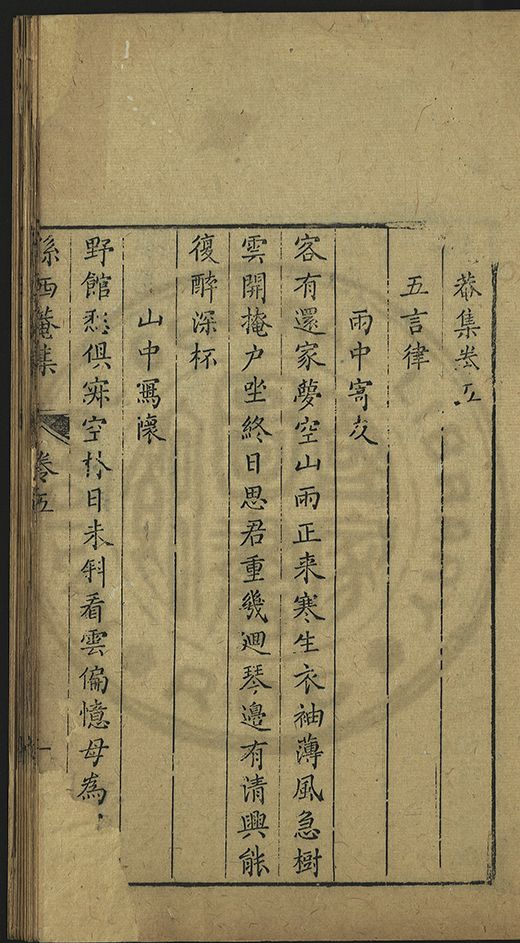 菴集卷五
五言律
雨中寄友
客有還家夢空山雨正来寒生衣袖薄風急樹
雲開掩户坐終日思君重幾廻琴邊有清興能
復醉深杯
山中寫懐
野館愁俱寂空林日未斜看雲偏憶母為
孫西菴集 卷五 一